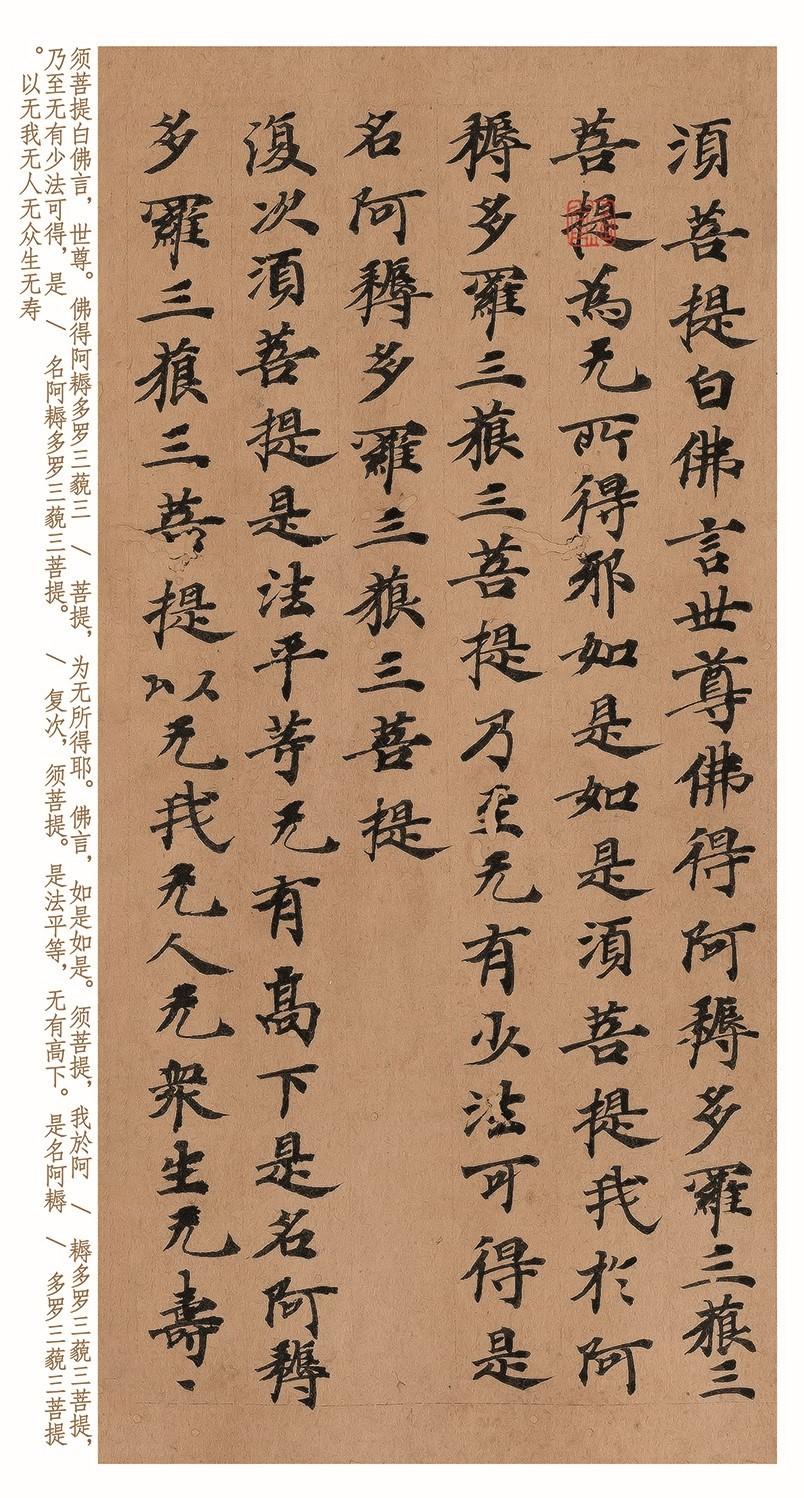 須菩提白佛言世尊佛得阿耨多羅三藐三
菩提為无所得邪如是如是須菩提我於阿
耨多羅三藐三菩提乃至无有少法可得是
名阿耨多羅三藐三菩提
復次須菩提是法平等无有高下是名阿耨
多羅三藐三菩提以无我无人无衆生无壽、
须菩提白佛言，世尊。佛得阿耨多罗三藐三 / 菩提，为无所得耶。佛言，如是如是。须菩提，我於阿 / 耨多罗三藐三菩提，
乃至无有少法可得，是 / 名阿耨多罗三藐三菩提。 / 复次，须菩提。是法平等，无有高下。是名阿耨 / 多罗三藐三菩提
。以无我无人无众生无寿